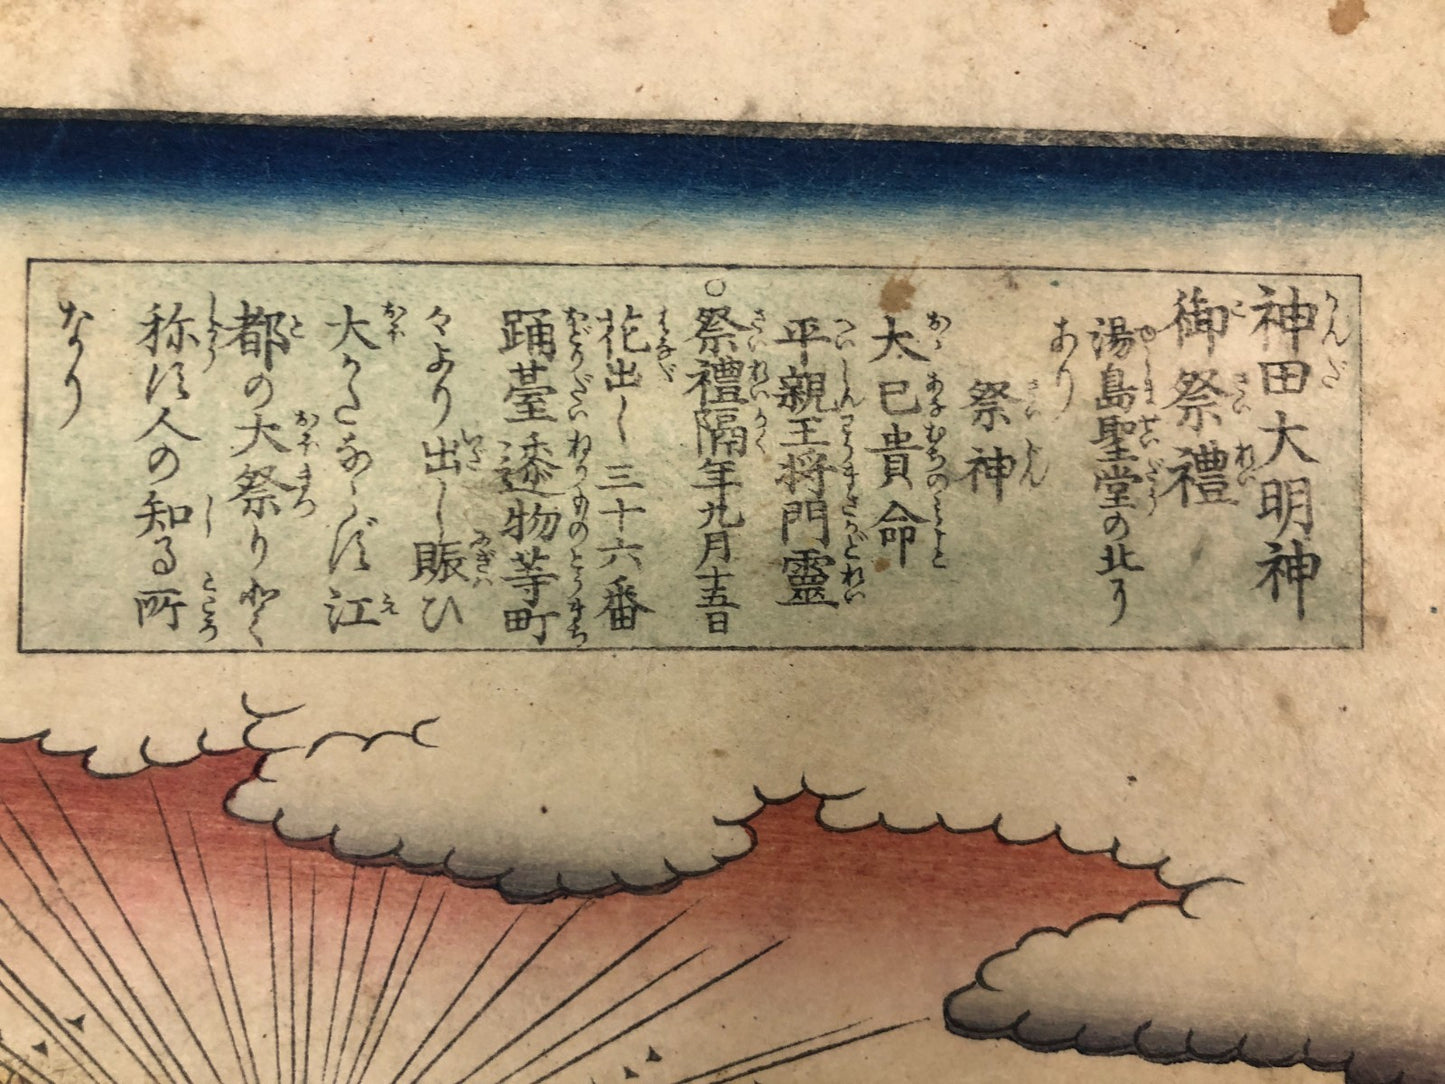 神田大明神
御祭禮
湯島聖堂の北に
あり
祭神
大巳貴命
平親王将門霊
○祭禮隔年九月十五日
花出し三十六番
踊䑓邌物等町
々より出し賑ひ
大かたならず江
都の大祭りと
称す人の知る所
なり